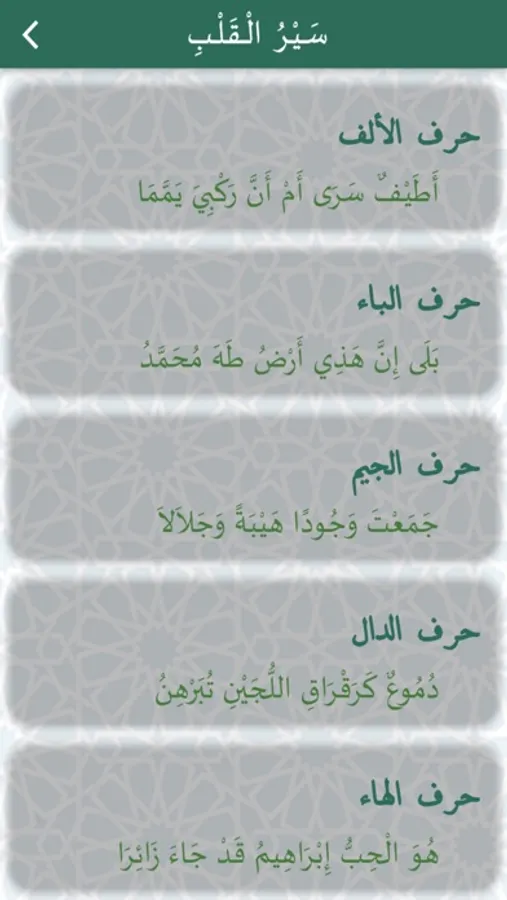 سَيْرُ الْقَلْبِ
حرف الألف
أَطَيْفٌ سَرَى أَمْ أَنَّ رَكْبِيَ يَمَّمَا
حرف الباء
بَلَى إِنَّ هَذِي أَرْضُ طَهَ مُحَمَّدُ
حرف الجيم
جَمَعْتَ وَجُودًا هَيْبَةً وَجَلاَلاَ
حرف الدال
دُمُوعٌ كَرَقْرَاقِ اللُّجَيْنِ تُبَرْهِنُ
حرف الهاء
هُوَ الْحِبُّ إِبْرَاهِيمُ قَدْ جَاءَ زَائِرَا